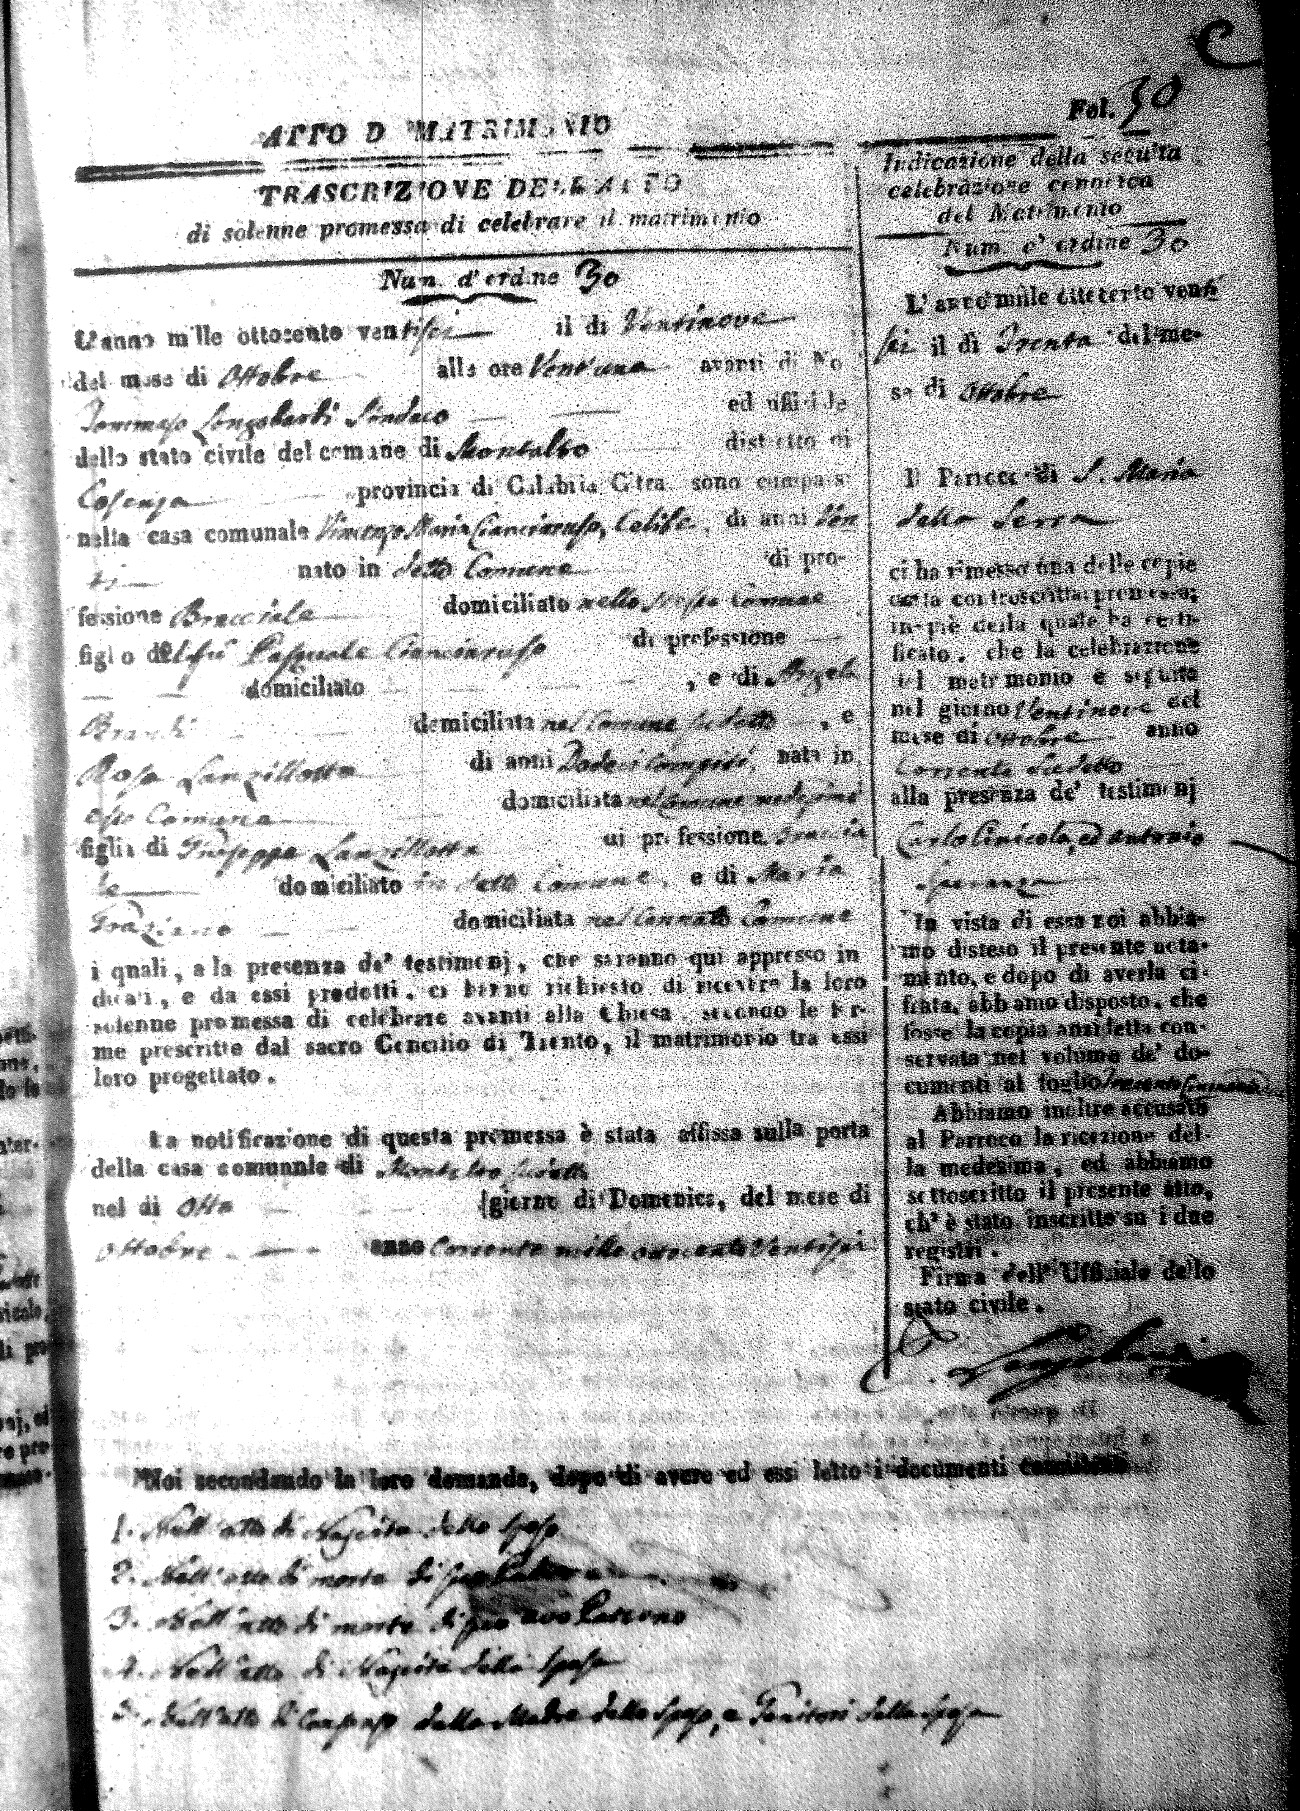 Fol. 30
ATTO D MATRIMONIO
TRASCRIZIONE DELL'ATTO
di solenne promessa di celebrare il matrimonio
Num. d'ordine 30
L'anno mille ottocento ventisei il di Ventinove
del mese di Ottobre alle ore Vent'una avanti di No
Tommaso Longobardi Sindaco ed uffiziale
dello stato civile del comune di Montalto distretto di
Cosenza provincia di Calabria Citra sono comparsi
nella casa comunale Vincenzo Maria Cianciaruso, Celibe, di anni Ven
ti nato in detto Comune di pro-
fessione Bracciale domiciliato nello stesso Comune
figlio del fu Pasquale Cianciaruso di professione
domiciliato , e di Angela
domiciliata nel Comune sudetto , e
Rosa Lanzillotta di anni Dodeci compiti, nata in
esso Comune domiciliata nel Comune medesimo
figlia di Giuseppe Lanzillotta di professione Braccia
le domiciliato in detto Comune, e di Maria
Graziano domiciliata nel Cennato Comune
i quali, a la presenza de' testimonj, che saranno qui appresso in
dicati, e da essi prodotti, ci hanno richiesto di ricevere la loro
solenne promessa di celebrare avanti alla Chiesa, secondo le for-
me prescritte dal sacro Concilio di Trento, il matrimonio tra essi
loro progettato.
La notificazione di questa promessa è stata affissa sulla porta
della casa comunale di Montalto sudetto
nel di Otto giorno di Domenica, del mese di
Ottobre anno Corrente mille ottocento Ventisei
Indicazione della seguita
celebrazione canonica
del Matrimonio
Num. d'ordine 30
L'anno mille ottocento venti
sei il di Trenta del me-
se di Ottobre
Il Parroco di S. Maria
della Serra
ci ha rimesso una delle copie
della controscritta promessa;
in piè della quale ha certi-
ficato, che la celebrazione
del matrimonio è seguita
nel giorno Ventinove del
mese di Ottobre anno
Corrente sudetto
alla presenza de' testimonj
Carlo ed Antonio
Speranza
In vista di essa noi abbia-
mo disteso il presente nota-
mento, e dopo di averla ci-
frata, abbiamo disposto, che
fosse la copia anzidetta con-
servata nel volume de' do-
cumenti al foglio
Abbiamo inoltre accusato
al Parroco la ricezione del-
la medesima, ed abbiamo
sottoscritto il presente atto,
ch'è stato inscritto su i due
registri.
Firma dell' Uffiziale dello
stato civile.
Longobardi
Noi secondando la loro domanda, dopo di avere ad essi letto i documenti
1. Dell'atto di Nascita dello sposo
2. Dell'atto di morte di suo Padre
3. Dell'atto di morte di suo avo Paterno
4. Dell'atto di Nascita della sposa
5. Dell'atto di Consenso della Madre dello sposo, e Genitori della sposa